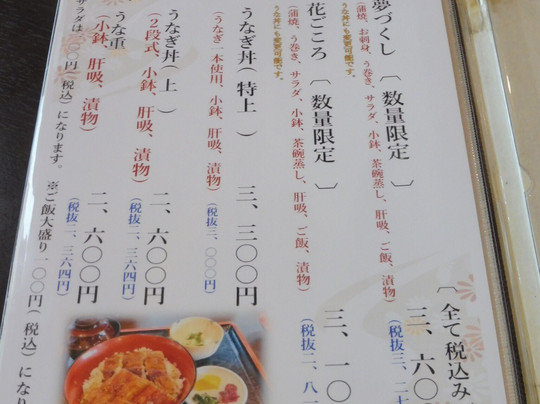 〔全て税込み
夢づくし 〔数量限定〕
(蒲焼、お刺身、う巻き、サラダ、小鉢、茶碗蒸し、肝吸、ご飯、漬物)
うな丼にも変更可能です。
三、六〇
(税抜三、二七
花ごころ 〔数量限定〕
(蒲焼、う巻き、サラダ、小鉢、茶碗蒸し、肝吸、ご飯、漬物)
うな丼にも変更可能です。
三、一〇
(税抜二、八
うなぎ丼(特上)
(うなぎ一本使用、小鉢、肝吸、漬物)
三、三〇〇円
(税抜三、〇〇〇円)
うなぎ丼(上)
(2段式、小鉢、肝吸、漬物)
二、六〇〇円
(税抜二、三六四円)
うな重
(小鉢、肝吸、漬物)
二、六〇〇円
(税抜二、三六四円)
サラダは
〇円(税込)になります。
※ご飯大盛り一〇〇円(税込)になり